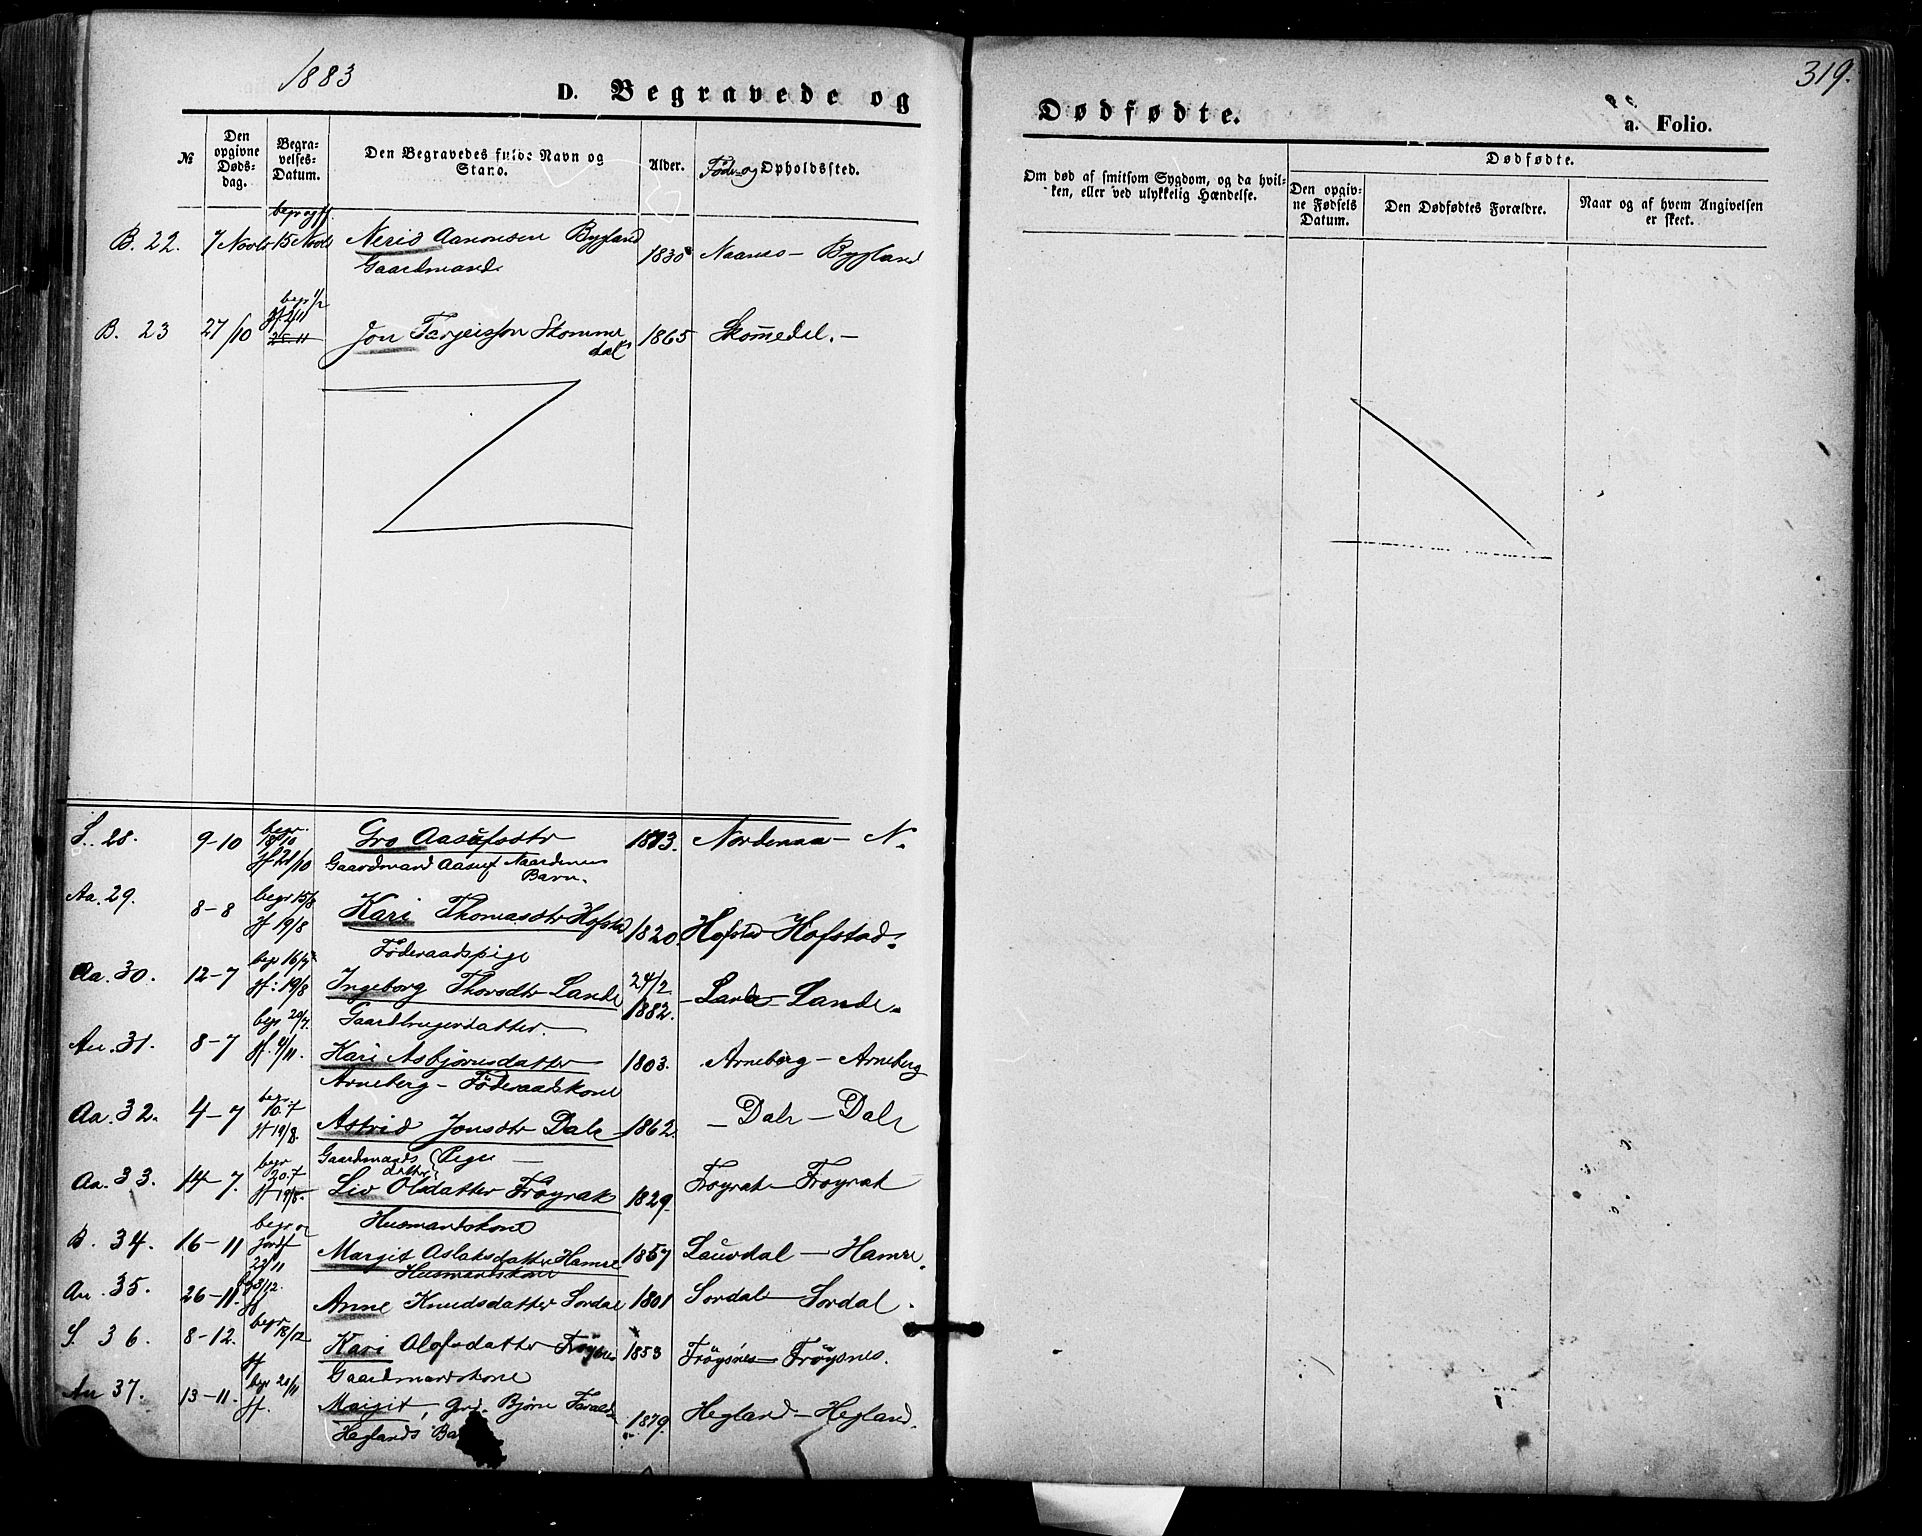 1883
D. Begravede og
№
Den opgivne Døds-dag.
Begra-velses-Datum.
Den Begravedes fulde Navn og Stand.
Alder.
Føde- og Opholdssted.
B. 22. 7 Novbr begr og jf. 15 Novbr Nerid Aanonsen Bygland 1830 Naanes – Bygland
Gaardmand
B. 23 27/10 begr 1/2 Jon Tarjeisson Skomme 1865 Skomedal. –
dal
S. 28. 9-10 begr. 18/10 Gro Aasufsdtr 1883. Nordenaa – N.
jf 21/10 Gaardmand Aasuf Naardenaas
Barn.
Aa. 29. 8-8 begr 15/8 Kari Thomasdtr Hofstad 1820. Hofstad Hofstad.
jf 19/8 Föderaadspige
Aa. 30. 12-7 begr 16/7 Ingeborg Thorsdtr Lande 24/2 1882. – Lande – Lande.
jf: 19/8 Gaardbrugerdatter.
Au. 31. 8-7 begr 20/7. Kari Asbjörnsdatter 1803. Arneberg – Arneberg
jf. 4/11. Arneberg – Föderaadskone
Aa. 32. 4-7 begr 10.7 Astrid Jonsdtr Dale 1862. – Dale – Dale
jf 19/8. Gaardmands datter Pige –
Aa. 33. 14-7. begr 20.7 Liv Olsdatter Fröyrak 1829. Fröyrak – Fröyrak
jf 19/8. Husmandskone
B. 34. 16-11 begr og jordf 22/11 Margit Aslaksdatter Hamre 1857 Lauvdal – Hamre.
Husmandskone
Au. 35. 26-11. begr 3/12. jf Anne Knudsdatter Sordal 1801 Sordal – Sordal.
S. 36. 8-12. begr 18/12 Kari Olofsdatter Fröysnes 1853 Fröysnes – Fröysnes.
jf Gaardmandskone
Au 37. 13-11. begr 20/11 Margit, Grd. Bjørn Taralds 1879. Hegland – Hegland.
jf. Heglands Ba
319.
Dødfødte.
a. Folio.
Om død af smitsom Sygdom, og da hvil-ken, eller ved ulykkelig Hændelse.
Dødfødte.
Den opgiv-ne Fødsels Datum.
Den Dødfødtes Forældre.
Naar og af hvem Angivelsen er skeet.